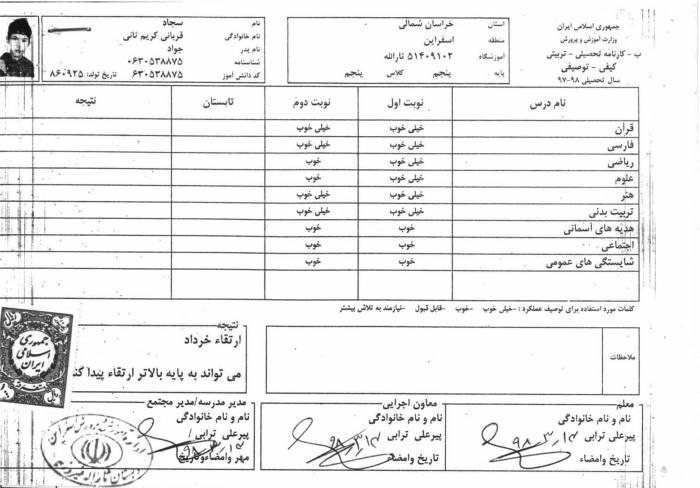 جمهوری اسلامی ایران
وزارت آموزش و پرورش
ب - کارنامه تحصیلی - تربیتی
کیفی - توصیفی
سال تحصیلی ۹۸-۹۷
استان خراسان شمالی
منطقه اسفراین
آموزشگاه ۵۱۴۰۹۱۰۲ ثارالله
پایه پنجم کلاس پنجم
نام سجاد
نام خانوادگی قربانی کریم نانی
نام پدر جواد
شناسنامه ۰۶۳۰۵۳۸۸۷۵
کد دانش آموز ۰۶۳۰۵۳۸۸۷۵ تاریخ تولد: ۸۶۰۹۲۵
نام درس نوبت اول نوبت دوم تابستان نتیجه
قرآن خیلی خوب خیلی خوب
فارسی خیلی خوب خیلی خوب
ریاضی خیلی خوب خوب
علوم خیلی خوب خوب
هنر خیلی خوب خیلی خوب
تربیت بدنی خیلی خوب خیلی خوب
هدیه های آسمانی خوب خوب
اجتماعی خوب خوب
شایستگی های عمومی خوب خوب
کلمات مورد استفاده برای توصیف عملکرد : -خیلی خوب -خوب -قابل قبول -نیازمند به تلاش بیشتر
ملاحظات
نتیجه
ارتقاء خرداد
می تواند به پایه بالاتر ارتقاء پیدا کند
جمهوری
اسلامی
ایران
معلم
نام و نام خانوادگی
پیرعلی ترابی
۹۸,۳,۱۲
تاریخ وامضاء
معاون اجرایی
نام و نام خانوادگی
پیرعلی ترابی
۹۸,۳,۱۲
تاریخ وامضاء
مدیر مدرسه/مدیر مجتمع
نام و نام خانوادگی
پیرعلی ترابی
۹۸,۳,۱۲
مهر وامضاءوتاریخ